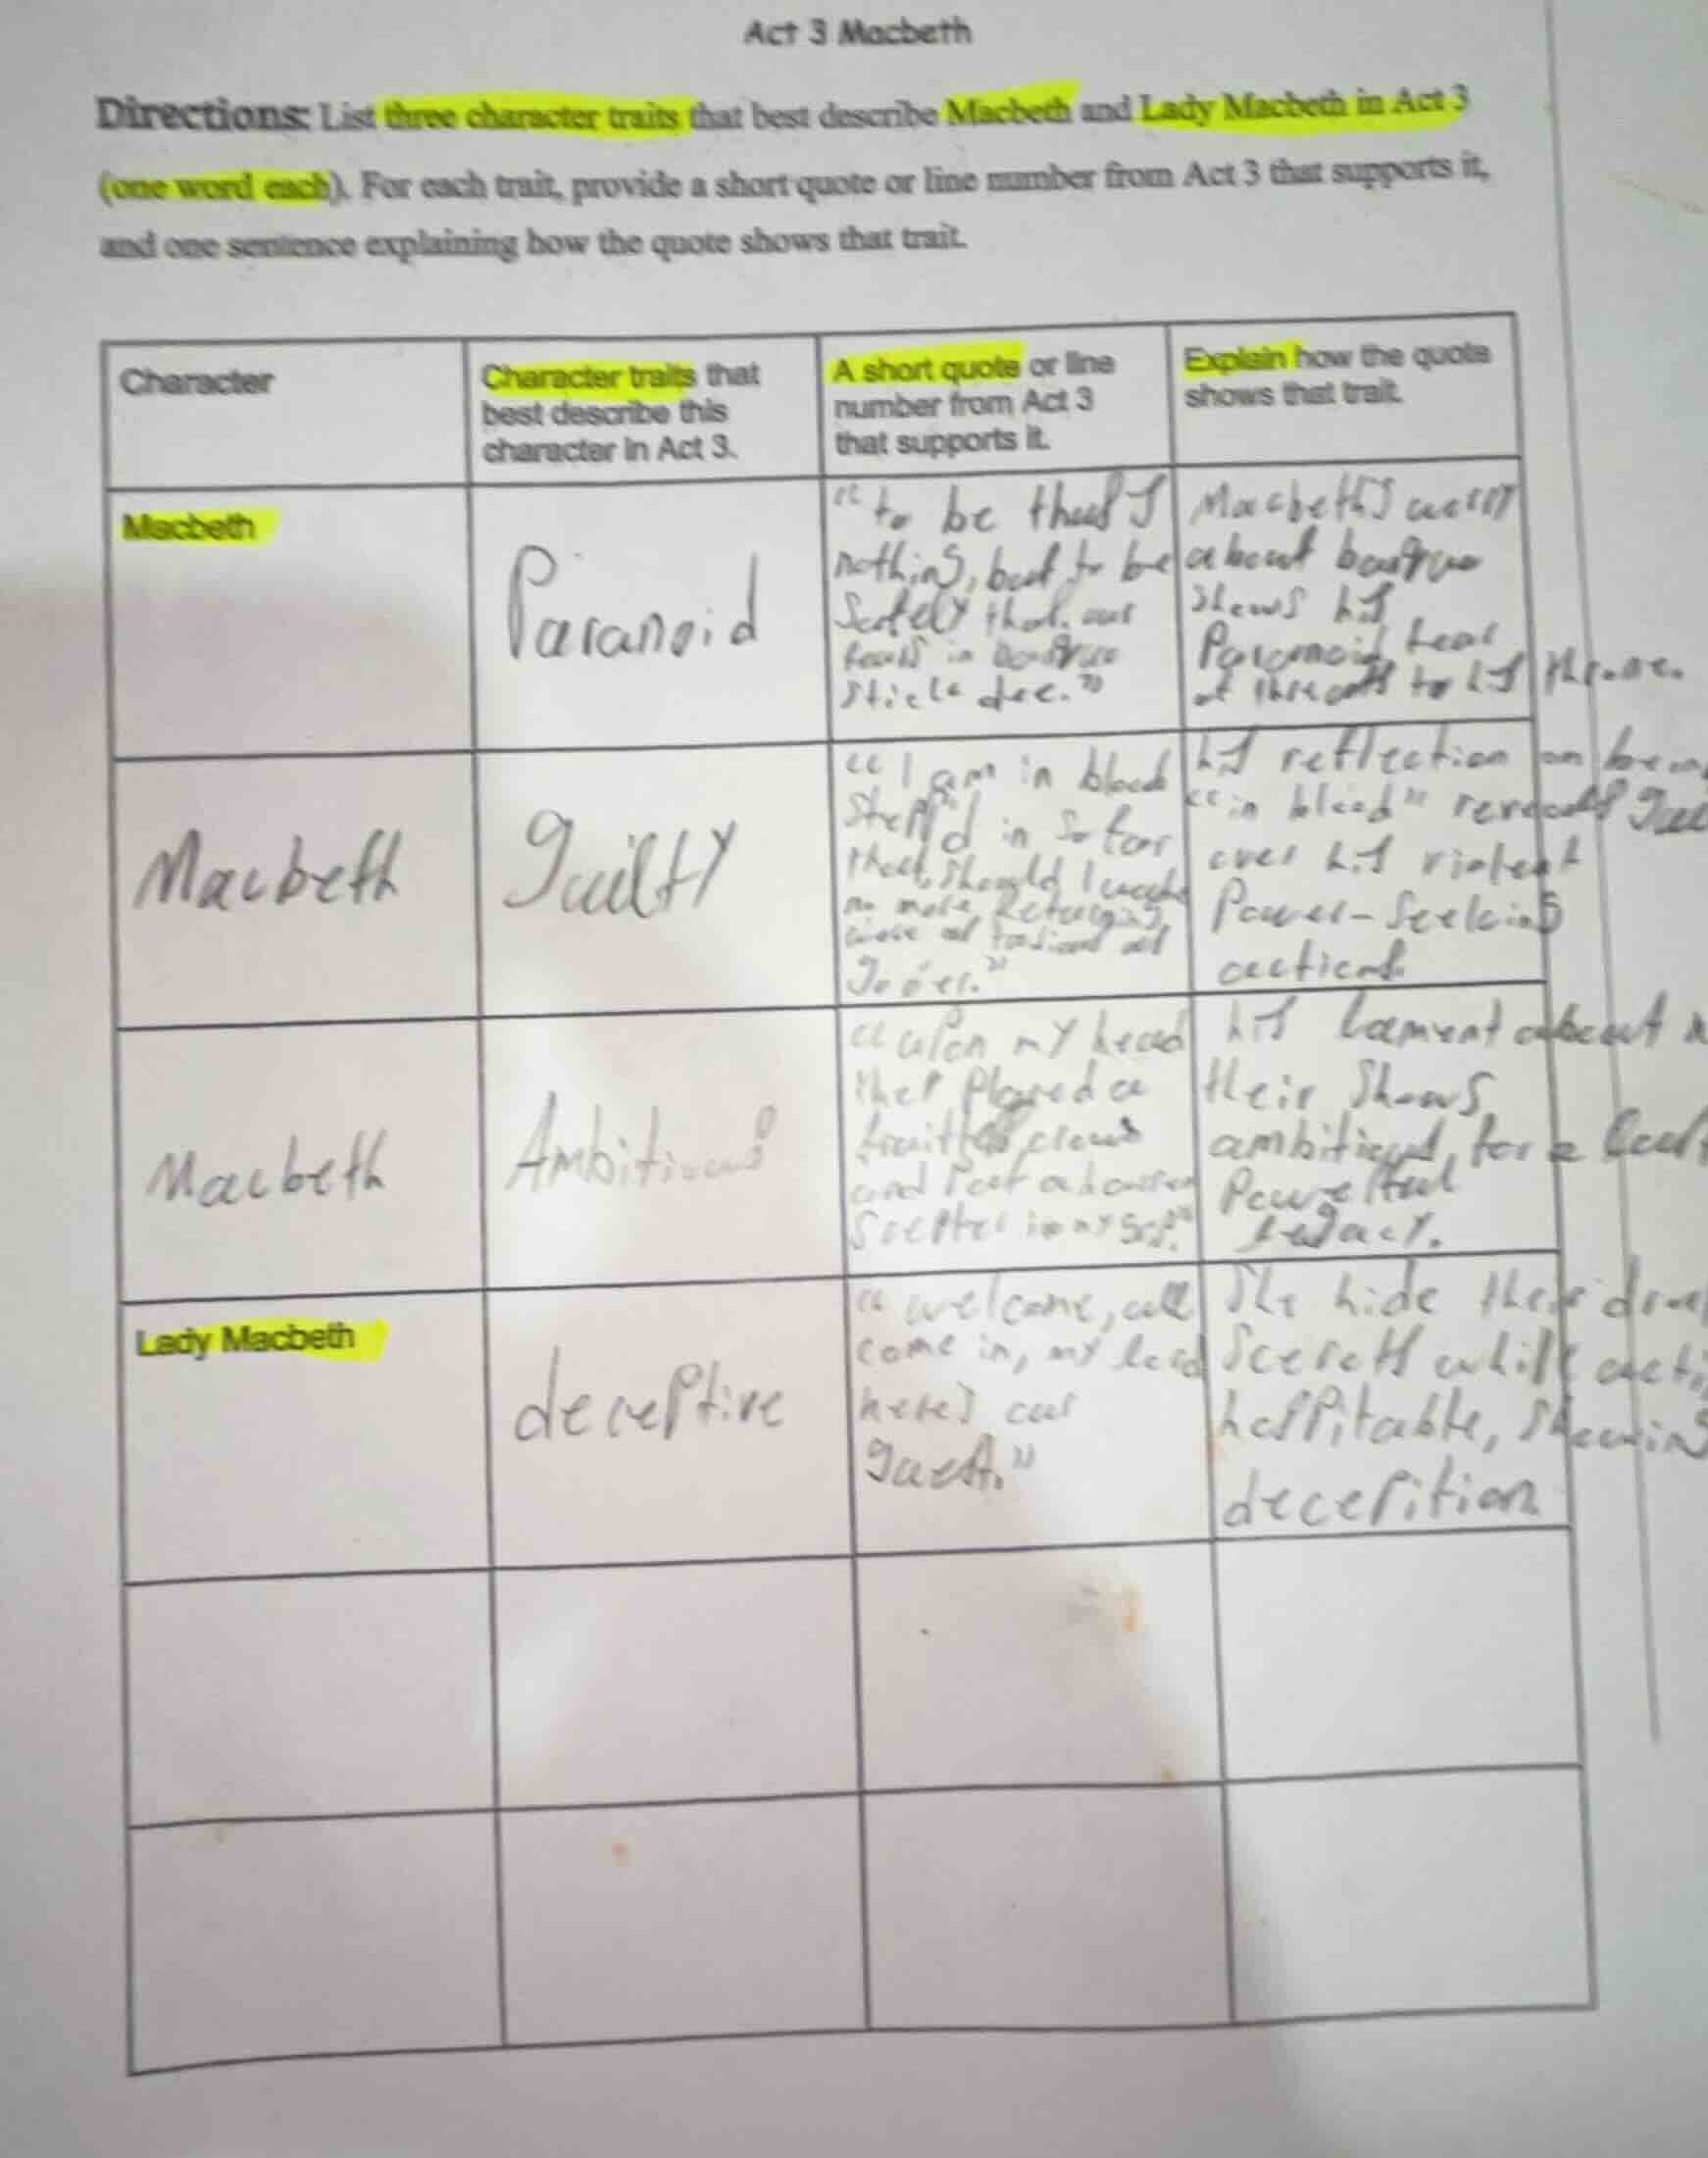 Act 3 Macbeth
Directions: List three character traits that best describe Macbeth and Lady Macbeth in Act 3
(one word each). For each trait, provide a short quote or line number from Act 3 that supports it,
and one sentence explaining how the quote shows that trait.
Character
Character traits that
best describe this
character in Act 3.
A short quote or line
number from Act 3
that supports it.
Explain how the quote
shows that trait.
Macbeth
Paranoid
"to be thus
nothing, but to be
Safely thus. our
in
Stick dee."
Macbeth's
about
shows his
Paranoid fear
of threats to his throne.
Macbeth
guilty
"I am in blood
in so far
that, should I
no more Returning
as
go o'er."
his reflection on
"in blood" reveals
over his violent
Power-Seeking
actions.
Macbeth
Ambitious
"upon my head
they placed a
crown
and Put a
Scepter in my
his lament about
their shows
ambitious, for a
Powerful
legacy.
Lady Macbeth
deceptive
"welcome, all
come in, my lord
here's our
guest."
She hide their
while
hospitable, showing
decepition